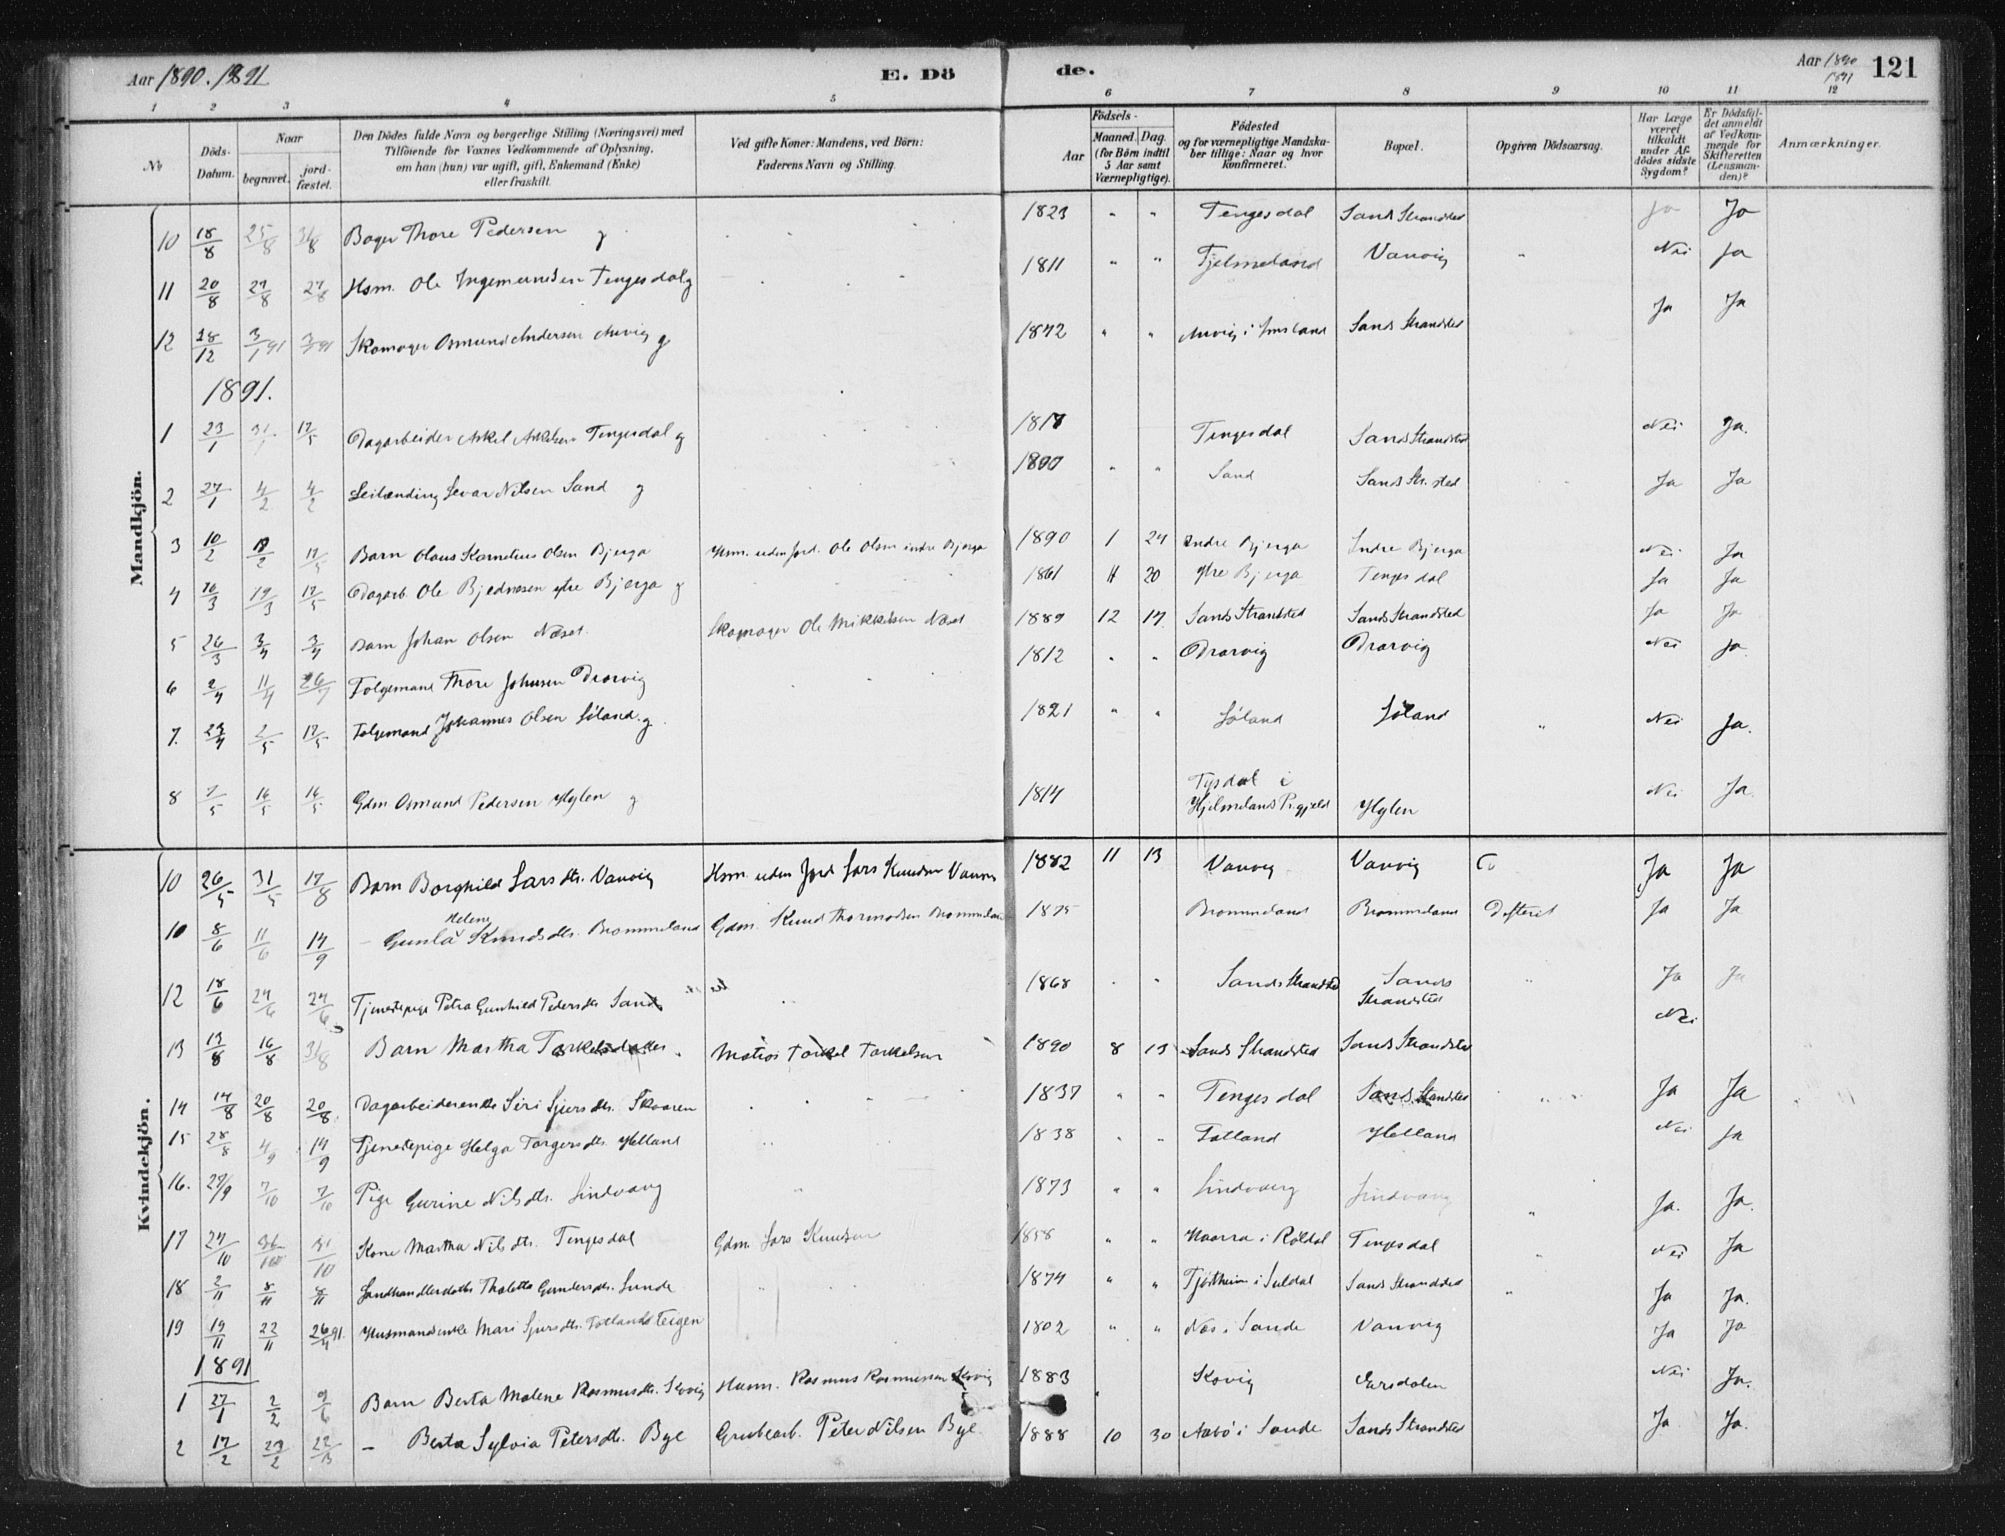 Aar 1890. 1891
E. Dö
de.
Aar 1890
1891
121
1 2 3 4 5 6 7 8 9 10 11 12
No
Döds-Datum.
Naar
begravet.
jord-fæstet.
Den Dödes fulde Navn og borgerlige Stilling (Næringsvei) med
Tilföiende for Voxnes Vedkommende af Oplysning,
om han (hun) var ugift, gift, Enkemand (Enke)
eller fraskilt.
Ved gifte Koner: Mandens, ved Börn:
Faderens Navn og Stilling.
Födsels-
Aar
Maaned. Dag.
(for Börn indtil
5 Aar samt
Værnepligtige).
Födested
og for værnepligtige Mandska-
ber tillige: Naar og hvor
konfirmeret.
Bopæl.
Opgiven Dödsaarsag.
Har Læge
været
tilkaldt
under Af-
dödes sidste
Sygdom?
Er Dödsfal-
det anmeldt
af Vedkom-
mende for
Skifteretten
(Lensman-
den)?
Anmærkninger.
Mandkjön.
10 18/8 25/8 31/8 Bager Thore Pedersen g 1823 " " Tengesdal Sands Strandsted Ja Ja
11 20/8 27/8 27/8 Hsm. Ole Ingemundsen Tengesdal g 1811 " " Fjelmeland Vanvig " Nei Ja
12 28/12 3/1 91 3/1 91 Skomager Osmund Andersen g 1872 " " Sands Strandsted Ja Ja
1891.
1 23/1 31/1 17/5 Dagarbeider Askel Tengesdal g Tengesdal Sands Strandsted Nei Ja.
2 27/1 4/2 4/2 Leilænding Nilsen Sand g " " Sand Sands Str. sted Ja Ja
3 10/2 17/5 Barn Olaus Olsen Bjerga Hsm. uden Jord. Ole Olsen indre Bjerga 1890 1 24 Indre Bjerga Indre Bjerga Nei Ja
4 19/3 17/5 Dagarb. Ole ytre Bjerga g 1861 20 ytre Bjerga Tengesdal Ja Ja
5 26/3 3/4 3/4 Barn Johan Olsen Næset Skomager Ole Mikkelsen Næset 1889 12 17 Sands Strandsted Sands Strandsted Ja Ja
6 2/4 11/4 Folgemand Thore Johnsen Drarvig 1812 " " Drarvig Drarvig Nei Ja
7. 2/5 17/5 Folgemand Johannes Olsen Løland. g 1821 " " Løland Løland " Nei Ja.
8 7/5 16/5 16/5 Gdm Osmund Pedersen Hylen g 1814 Tysdal i
Hjelmelands Prgjeld Hylen Nei Ja.
Kvindekjön.
10 26/5 31/5 17/8 Barn Borghild Larsdtr. Vanvig Hsm. uden Jord Lars Knudsen Vanvig 1882 11 13 Vanvig Vanvig Ja Ja
Helene
10 8/6 11/6 14/9 – Gunla Knudsdtr. Brommeland Gdm. Knud Thormodsen Brommeland 1875 Brommeland Brommeland Difterit Ja Ja
12 18/6 24/6 24/6 Tjenestepige Petra Gunhild Pedersdtr Sand 1868 " " Sands Strandsted Sands
Strandsted " Ja Ja
13 13/8 16/8 31/8 Barn Martha Matros Torkel Torkelsen 1890 8 13 Sands Strandsted Sands Strandsted Nei
14 14/8 20/8 20/8 Dagarbeiderenke Siri Sjursdtr. Skaaren 1837 " " Tengesdal Sands Strandsted Ja Ja
15 28/8 4/9 14/9 Tjenestepige Helga Torgersdtr. Helland 1838 " " Helland Nei Ja
16. 27/9 7/10 7/10 Pige Gurine Nilsdtr. Lindvang 1873 " " Lindvang Lindvang " Ja. Ja.
17 24/10 31/10 Kone Martha Nilsdtr. Tengesdal Gdm. Lars Knudsen 1858 " " i Røldal Tengesdal " Nei Ja
18 2/11 8/11 8/11 Landhandlerdatter Gundersdtr. Sunde 1874 " " i Suldal Sands Strandsted " Ja Ja.
19 19/11 22/11 26/4 91. Husmandsenke Mari Sjursdtr. Totlands Teigen 1802 " " Næs i Sande Vanvig Ja Ja
1891
1 27/1 2/2 9/6 Barn Berta Malene Rasmusdtr. Skovig Husm. Rasmus Rasmussen Skovig 1883 Skovig Nei Ja.
2 17/2 – Berta Sylvia Petersdtr. Bye Grubearb. Peter Nilsen Bye 1888 10 30 i Sande Sands Strandsted Ja Ja.